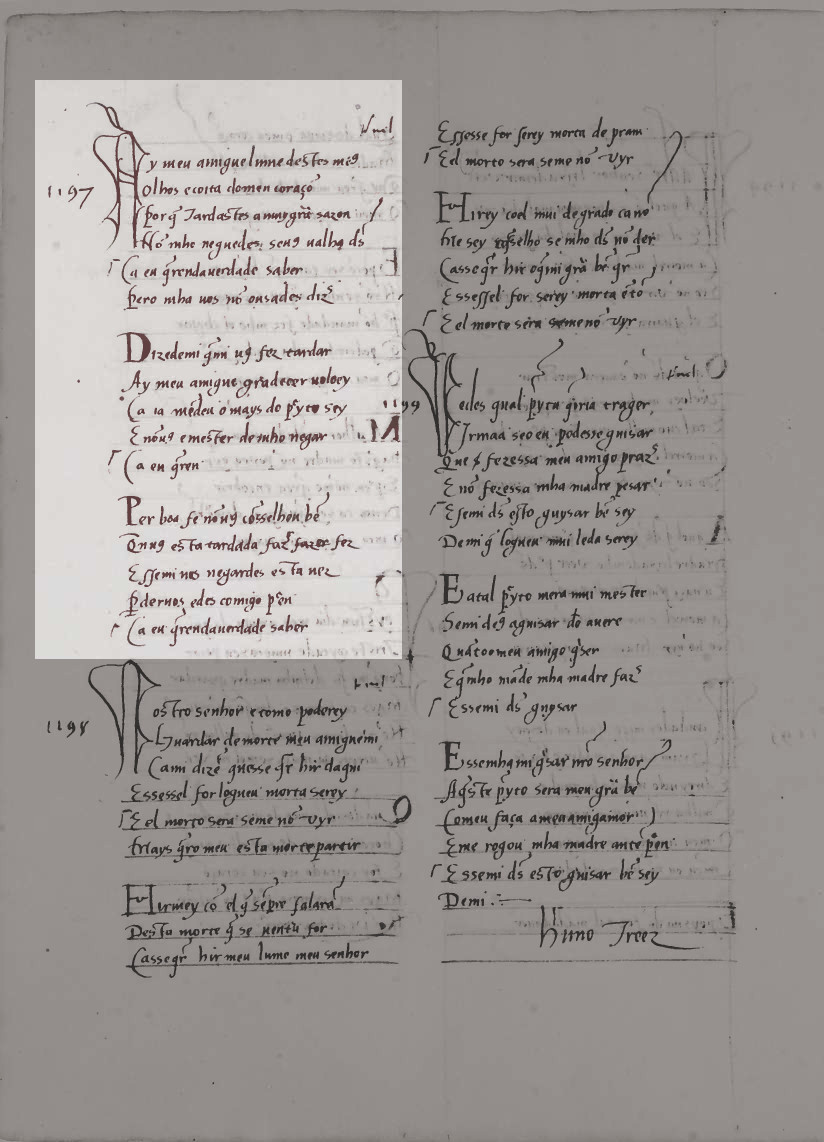 1197
Ay meu amigue lume destes me9
Olhos e coita do meu coraçõ
Porq̄ Tardastes a muy grã sazon
Nõ mho neguedes, seu9 valha ds̄
Ca eu q̄renda verdade saber
Pero mha uos nõ ousades diz̃
Dizedemi quẽ u9 fez tardar
Ay meu amigue gradecer uoloey
Ca ia mẽdeu o mays do p̃yto sey
E nõu9 e mester de mho negar
Ca eu q̄ren
Per boa fe nõ u9 cõsselhou bẽ
Quẽ u9 esta tardada faz̃ fez
E ssemi uos negardes esta uez
P̱deruos edes comigo p̃ en
Ca eu q̄renda verdade saber
1198
Nostro senhor e como poderey
Guardar de morte meu amig a mi
Ca mi dizẽ quesse q̄r hir daqui
E ssessel for logueu morta serey
E el morto sera seme nõ uyr
Mays q̄ro meu esta morte partir
Hirmey cõ el q̄ sẽpre falarã
Desta morte q̄ se uentu for
Ca sse q̄r hir meu lume meu senhor
E ssesse for serey morta de pram
E el morto sera seme nõ uyr
Hirey coel mui de grado ca nõ
Me sey cõsselho se mho ds̄ nõ der
Ca sse q̄r hir o q̄ mi grã bẽ q̄r
E ssessel for serey morta entõ
E el morto sera seme nõ uyr
1199
Vedes qual p̃yto q̄ria trager,
Irmaa seo eu podesse guisar
Que fezessa meu amigo praz̃
E nõ fezessa mha madre pesar
E semi ds̄ esto guysar bẽ sey
De mi q̄ logueu mui leda serey
E atal p̃yto mera mui mester
Semi de9 aguisar do auer
Quãto meu amigo q̄ser
E q̄ mho mãde mha madre faz̃
E ssemi ds̄ guysar
E ssemha mi g̃sar nr̃o senhor
Aq̃ste p̃yto sera meu grã bẽ
Comeu faça a meu amigamor
E me rogou mha madre ante p̃ en
E ssemi ds̄ esto guisar bẽ sey
Demi